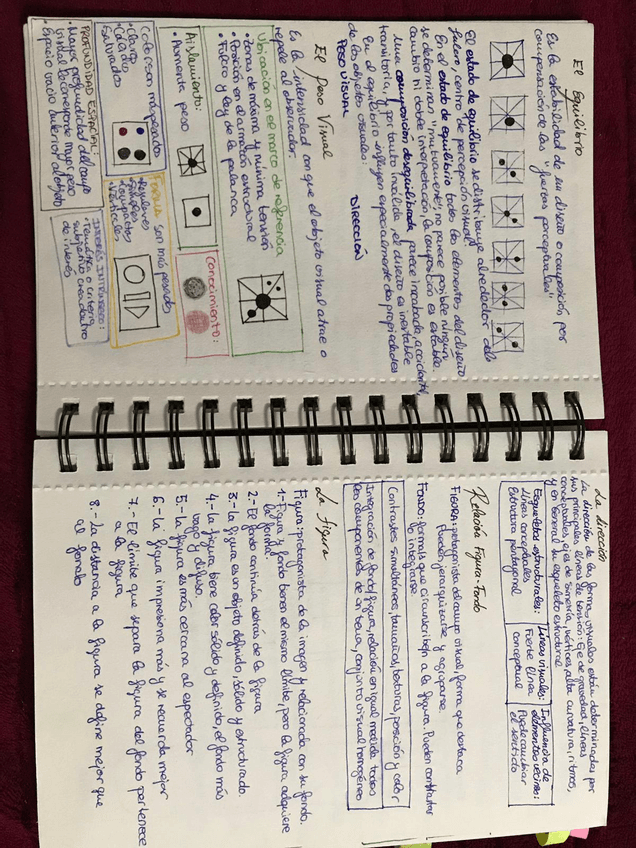 El Equilibrio
Es la estabilidad de un diseño o composición, por
compensación de las "fuerzas perceptuales"
El estado de equilibrio se distribuye alrededor del
fulcro, centro de percepción visual
En el estado de equilibrio todos los elementos del diseño
se determinan "mutuamente", no parece posible ningún
cambio ni doble interpretación, la composición es estable.
Una composición desequilibrada parece inacabada, accidental,
transitoria, y por tanto inválida, el diseño es inestable
En el equilibrio influyen especialmente dos propiedades
de los objetos visuales:
PESO VISUAL DIRECCIÓN
El peso Visual
Es la intensidad con que el objeto visual atrae o
repele al observador.
Ubicación en el marco de referencia
• Zonas de máxima y mínima tensión
• Posición en el armazón estructural
• Fulcro y Ley de la palanca
Aislamiento:
• Aumenta peso
Conocimiento:
Colores más pesados
• Claros
• Cálidos
• Saturados
FORMA son más pesados
• Regulares
• Simples
• Compactos
• Verticales
PROFUNDIDAD ESPACIAL:
• Mayor profundidad del campo
visual le concede mayor peso
• Espacio vacío superior al objeto
INTERÉS INTRÍNSECO:
• Temática o criterio
subjetivo crea centro
de interés
La dirección
La dirección de las formas visuales están determinadas por
sus principales líneas de tensión: Eje de gravedad, líneas
conceptuales, ejes de simetría, vértices, alta curvatura, ritmos,
y en general su esqueleto estructural
Esqueletos estructurales:
Línea conceptuales
Estructura pentagonal
Líneas visuales:
Fuerte línea
conceptual
Influencia de
elementos vecinos:
Puede cambiar
el sentido
Relación Figura-Fondo
FIGURA: protagonista del campo visual, forma que destaca
Pueden jerarquizarse y agruparse.
FONDO: formas que circunscriben a la figura. Pueden contrastar
o integrarse
Contrastes simultáneos, tamaños, texturas, posición y color
Integración de fondo/figura, relación en igual medida todos
los componentes de un tema, conjunto visual homogéneo
La figura
Figura: protagonista de la imagen y relacionada con su fondo.
1.- Figura y fondo tienen el mismo límite, pero la figura adquiere
la forma
2.- El fondo continúa detrás de la figura
3.- La figura es un objeto definido, sólido y estructurado.
4.- La figura tiene color sólido y definido, el fondo más
vago y difuso.
5.- La figura es más cercana al espectador
6.- La figura impresiona más y se recuerda mejor
7.- El límite que separa la figura del fondo pertenece
a la figura
8.- La distancia a la figura se define mejor que
al fondo